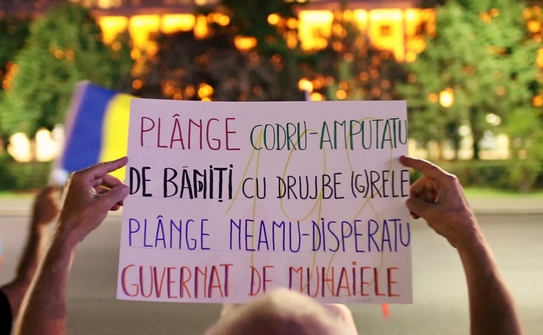 PLÂNGE CODRU-AMPUTATU
DE BĂNIȚI CU DRUJBE (G)RELE
PLÂNGE NEAMU-DISPERATU
GUVERNAT DE MUHAIELE